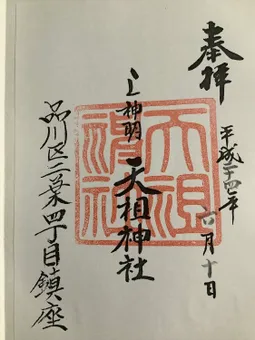 奉拝
平成二十四年
六月十日
上神明
天祖神社
品川区二葉四丁目鎮座
天祖神社